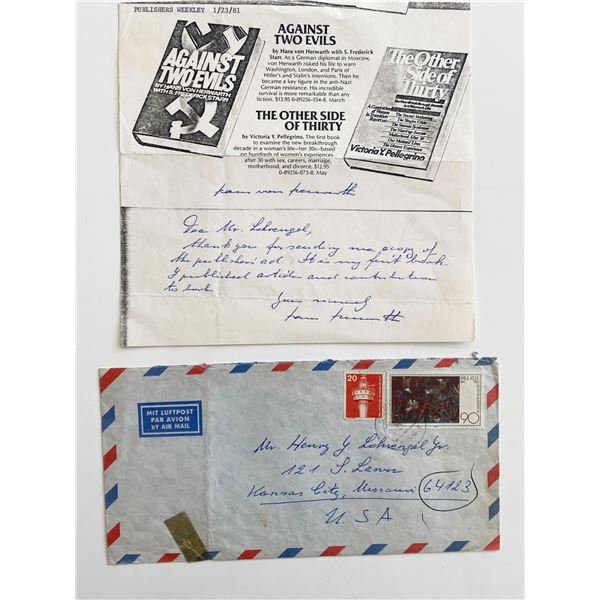 PUBLISHERS WEEKLEY 1/23/81
AGAINST
TWO EVILS
by Hans von Herwarth with S. Frederick
Starr. As a German diplomat in Moscow,
von Herwarth risked his life to warn
Washington, London, and Paris of
Hitler's and Stalin's intentions. Then he
became a key figure in the anti-Nazi
German resistance. His incredible
survival is more remarkable than any
fiction. $13.95 0-89256-154-8. March
THE OTHER SIDE
OF THIRTY
by Victoria Y. Pellegrino. The first book
to examine the new breakthrough
decade in a woman's life—her 30s—based
on hundreds of women's experiences
after 30 with sex, careers, marriage,
motherhood, and divorce. $12.95
0-89256-073-8. May
AGAINST
TWO EVILS
BY HANS VON HERWARTH
WITH S. FREDERICK STARR
The Other
Side of
Thirty
Victoria Y. Pellegrino
Hans von Herwarth
Dear Mr. Lohrengel,
thank you for sending me a copy of
the publishers ad. It is my first book.
I published articles and contributions
to book.
Yours sincerely
Hans Herwarth
MIT LUFTPOST
PAR AVION
BY AIR MAIL
20
90
Mr Henry J. Lohrengel Jr.
121 S. Lawn
Kansas City, Missouri 64123
U.S A